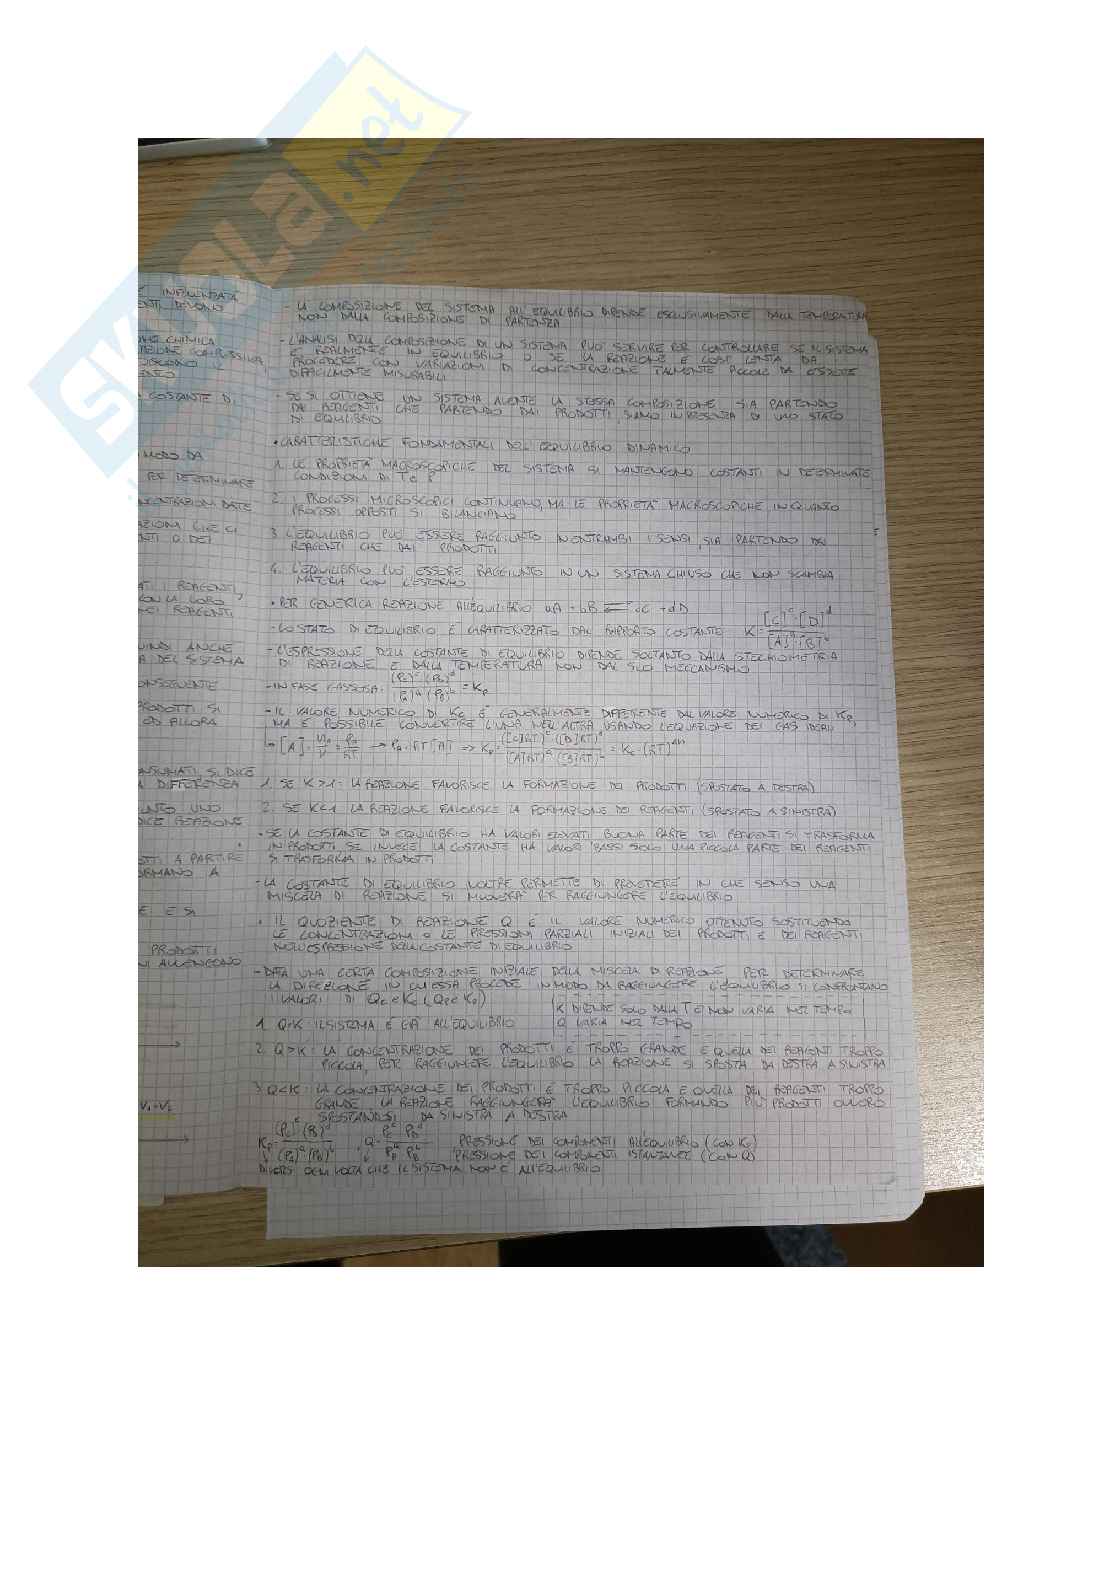 SKUOLA.net
È INFLUENZATA
DEVONO
CHIMICA
COSTANTE DI
MODO DA
PER DETERMINARE
CONCENTRAZIONI DATE
I REAGENTI,
CON LA LORO
REAGENTI
QUINDI ANCHE
DEL SISTEMA
CONSEGUENTE
PRODOTTI SI
OD ALLORA
CONSUMATI, SI DICE
DIFFERENZA
UNO
REAZIONE
A PARTIRE
FORMANO A
E SI
PRODOTTI
AVVENGONO
V₁=V₂
- LA COMPOSIZIONE DEL SISTEMA ALL'EQUILIBRIO DIPENDE ESCLUSIVAMENTE DALLA TEMPERATURA
NON DALLA COMPOSIZIONE DI PARTENZA
- L'ANALISI DELLA COMPOSIZIONE DI UN SISTEMA PUÒ SERVIRE PER CONTROLLARE SE IL SISTEMA
È REALMENTE IN EQUILIBRIO O SE LA REAZIONE È COSÌ LENTA DA
PROCEDERE CON VARIAZIONI DI CONCENTRAZIONE TALMENTE PICCOLE DA ESSERE
DIFFICILMENTE MISURABILI
- SE SI OTTIENE UN SISTEMA AVENTE LA STESSA COMPOSIZIONE SIA PARTENDO
DAI REAGENTI CHE PARTENDO DAI PRODOTTI, SIAMO IN PRESENZA DI UNO STATO
DI EQUILIBRIO
• CARATTERISTICHE FONDAMENTALI DELL'EQUILIBRIO DINAMICO
1. LE PROPRIETÀ MACROSCOPICHE DEL SISTEMA SI MANTENGONO COSTANTI IN DETERMINATE
CONDIZIONI DI T E P
2. I PROCESSI MICROSCOPICI CONTINUANO, MA LE PROPRIETÀ MACROSCOPICHE, IN QUANTO
PROCESSI OPPOSTI SI BILANCIANO
3. L'EQUILIBRIO PUÒ ESSERE RAGGIUNTO IN ENTRAMBI I SENSI, SIA PARTENDO DAI
REAGENTI CHE DAI PRODOTTI
4. L'EQUILIBRIO PUÒ ESSERE RAGGIUNTO IN UN SISTEMA CHIUSO CHE NON SCAMBIA
MATERIA CON L'ESTERNO
• PER GENERICA REAZIONE ALL'EQUILIBRIO aA + bB ⇌ cC + dD
- LO STATO DI EQUILIBRIO È CARATTERIZZATO DAL RAPPORTO COSTANTE K = [C]^c·[D]^d / [A]^a·[B]^b
- L'ESPRESSIONE DELLA COSTANTE DI EQUILIBRIO DIPENDE SOLTANTO DALLA STECHIOMETRIA
DI REAZIONE E DALLA TEMPERATURA NON DAL SUO MECCANISMO
- IN FASE GASSOSA: (Pc)^c (PD)^d / (PA)^a (PB)^b = Kp
- IL VALORE NUMERICO DI Kc È GENERALMENTE DIFFERENTE DAL VALORE NUMERICO DI Kp,
MA È POSSIBILE CONVERTIRE L'UNA NELL'ALTRA USANDO L'EQUAZIONE DEI GAS IDEALI
↳ [A] = nA/V = PA/RT → PA = RT[A] => Kp = ([C]RT)^c·([D]RT)^d / ([A]RT)^a·([B]RT)^b = Kc·(RT)^Δn
1. SE K > 1: LA REAZIONE FAVORISCE LA FORMAZIONE DEI PRODOTTI (SPOSTATO A DESTRA)
2. SE K < 1 LA REAZIONE FAVORISCE LA FORMAZIONE DEI REAGENTI (SPOSTATO A SINISTRA)
• SE LA COSTANTE DI EQUILIBRIO HA VALORI ELEVATI BUONA PARTE DEI REAGENTI SI TRASFORMA
IN PRODOTTI SE INVECE LA COSTANTE HA VALORI BASSI SOLO UNA PICCOLA PARTE DEI REAGENTI
SI TRASFORMA IN PRODOTTI
- LA COSTANTE DI EQUILIBRIO INOLTRE PERMETTE DI PREVEDERE IN CHE SENSO UNA
MISCELA DI REAZIONE SI MUOVERÀ PER RAGGIUNGERE L'EQUILIBRIO
• IL QUOZIENTE DI REAZIONE Q È IL VALORE NUMERICO OTTENUTO SOSTITUENDO
LE CONCENTRAZIONI O LE PRESSIONI PARZIALI INIZIALI DEI PRODOTTI E DEI REAGENTI
NELL'ESPRESSIONE DELLA COSTANTE DI EQUILIBRIO
- DATA UNA CERTA COMPOSIZIONE INIZIALE DELLA MISCELA DI REAZIONE PER DETERMINARE
LA DIREZIONE IN CUI ESSA PROCEDE IN MODO DA RAGGIUNGERE L'EQUILIBRIO SI CONFRONTANO
I VALORI DI Qc E Kc (Qp E Kp)
K DIPENDE SOLO DALLA T E NON VARIA NEL TEMPO
Q VARIA NEL TEMPO
1. Q=K: IL SISTEMA È GIÀ ALL'EQUILIBRIO
2. Q>K: LA CONCENTRAZIONE DEI PRODOTTI È TROPPO GRANDE E QUELLA DEI REAGENTI TROPPO
PICCOLA, PER RAGGIUNGERE L'EQUILIBRIO LA REAZIONE SI SPOSTA DA DESTRA A SINISTRA
3. Q<K: LA CONCENTRAZIONE DEI PRODOTTI È TROPPO PICCOLA E QUELLA DEI REAGENTI TROPPO
GRANDE LA REAZIONE RAGGIUNGERÀ L'EQUILIBRIO FORMANDO PIÙ PRODOTTI OVVERO
SPOSTANDOSI DA SINISTRA A DESTRA
Kp = (Pc)^c (PD)^d / (PA)^a (PB)^b , Q = Pc^c PD^d / PA^a PB^b PRESSIONE DEI COMPONENTI ALL'EQUILIBRIO (CON Kp)
PRESSIONE DEI COMPONENTI ISTANTANEE (CON Q)
DIVERSI OGNI VOLTA CHE IL SISTEMA NON È ALL'EQUILIBRIO